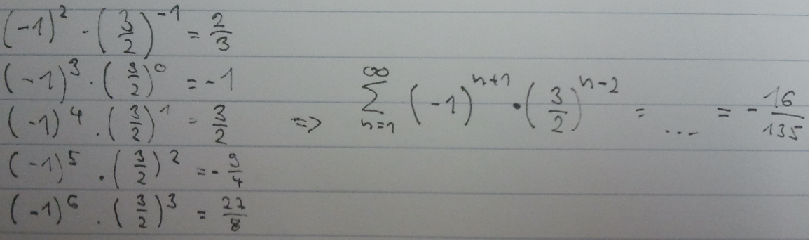 (-1)^2 · (3/2)^-1 = 2/3
(-1)^3 · (3/2)^0 = -1
(-1)^4 · (3/2)^1 = 3/2 ⇒ ∑_{n=1}^{∞} (-1)^{n+1} · (3/2)^{n-2} = ... = -16/135
(-1)^5 · (3/2)^2 = -9/4
(-1)^6 · (3/2)^3 = 27/8